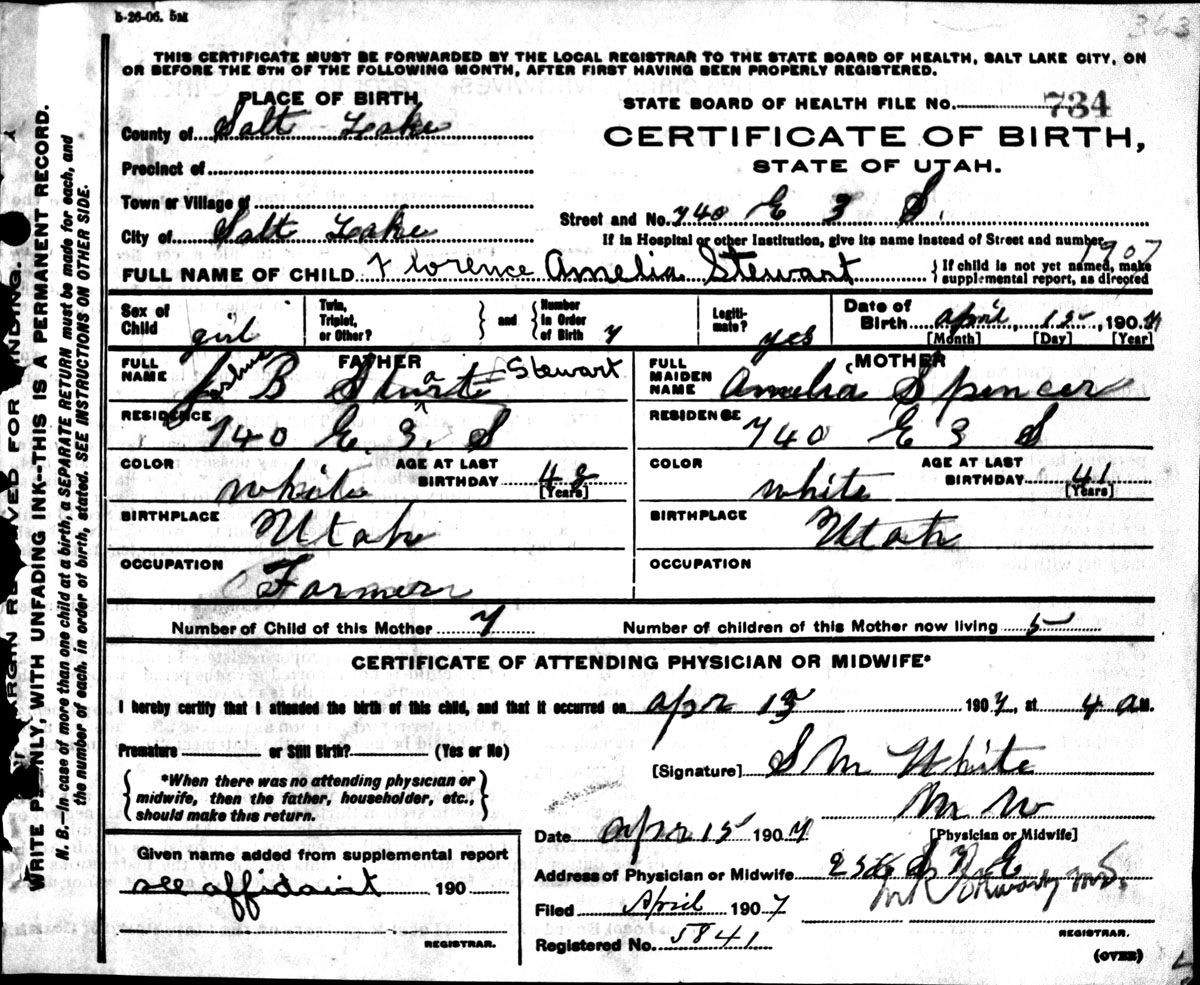 5-26-06. 5M
363
THIS CERTIFICATE MUST BE FORWARDED BY THE LOCAL REGISTRAR TO THE STATE BOARD OF HEALTH, SALT LAKE CITY, ON
OR BEFORE THE 5TH OF THE FOLLOWING MONTH, AFTER FIRST HAVING BEEN PROPERLY REGISTERED.
PLACE OF BIRTH
STATE BOARD OF HEALTH FILE NO. 734
County of Salt Lake
CERTIFICATE OF BIRTH,
STATE OF UTAH.
Precinct of
Town or Village of
Street and No. 740 E 3 S.
City of Salt Lake
If in Hospital or other Institution, give its name instead of Street and number
1907
FULL NAME OF CHILD Florence Amelia Stewart
{If child is not yet named, make
supplemental report, as directed
Sex of Child girl
Twin, Triplet, or Other?
} and {
Number In Order of Birth 7
Legiti-mate? yes
Date of Birth April, 15, 1907
[Month] [Day] [Year]
FATHER
FULL NAME B Sturt a Stewart
MOTHER
FULL MAIDEN NAME Amelia Spencer
RESIDENCE 740 E. 3. S
RESIDENCE 740 E 3 S
COLOR white
AGE AT LAST BIRTHDAY 42 [Years]
COLOR white
AGE AT LAST BIRTHDAY 41 [Years]
BIRTHPLACE Utah
BIRTHPLACE Utah
OCCUPATION Farmer
OCCUPATION
Number of Child of this Mother 7
Number of children of this Mother now living 5
CERTIFICATE OF ATTENDING PHYSICIAN OR MIDWIFE*
I hereby certify that I attended the birth of this child, and that it occurred on apr 15 1907, at 4 a M.
Premature or Still Birth? (Yes or No)
[Signature] S M White
{*When there was no attending physician or
midwife, then the father, householder, etc.,
should make this return.}
M W
Date apr 15 1907
[Physician or Midwife]
Given name added from supplemental report
see affidaint 190
Address of Physician or Midwife
Filed April 1907
REGISTRAR.
Registered No. 5841
REGISTRAR.
(OVER)
WRITE PLAINLY, WITH UNFADING INK--THIS IS A PERMANENT RECORD.
N. B.—In case of more than one child at a birth, a SEPARATE RETURN must be made for each, and
the number of each, in order of birth, stated. SEE INSTRUCTIONS ON OTHER SIDE.